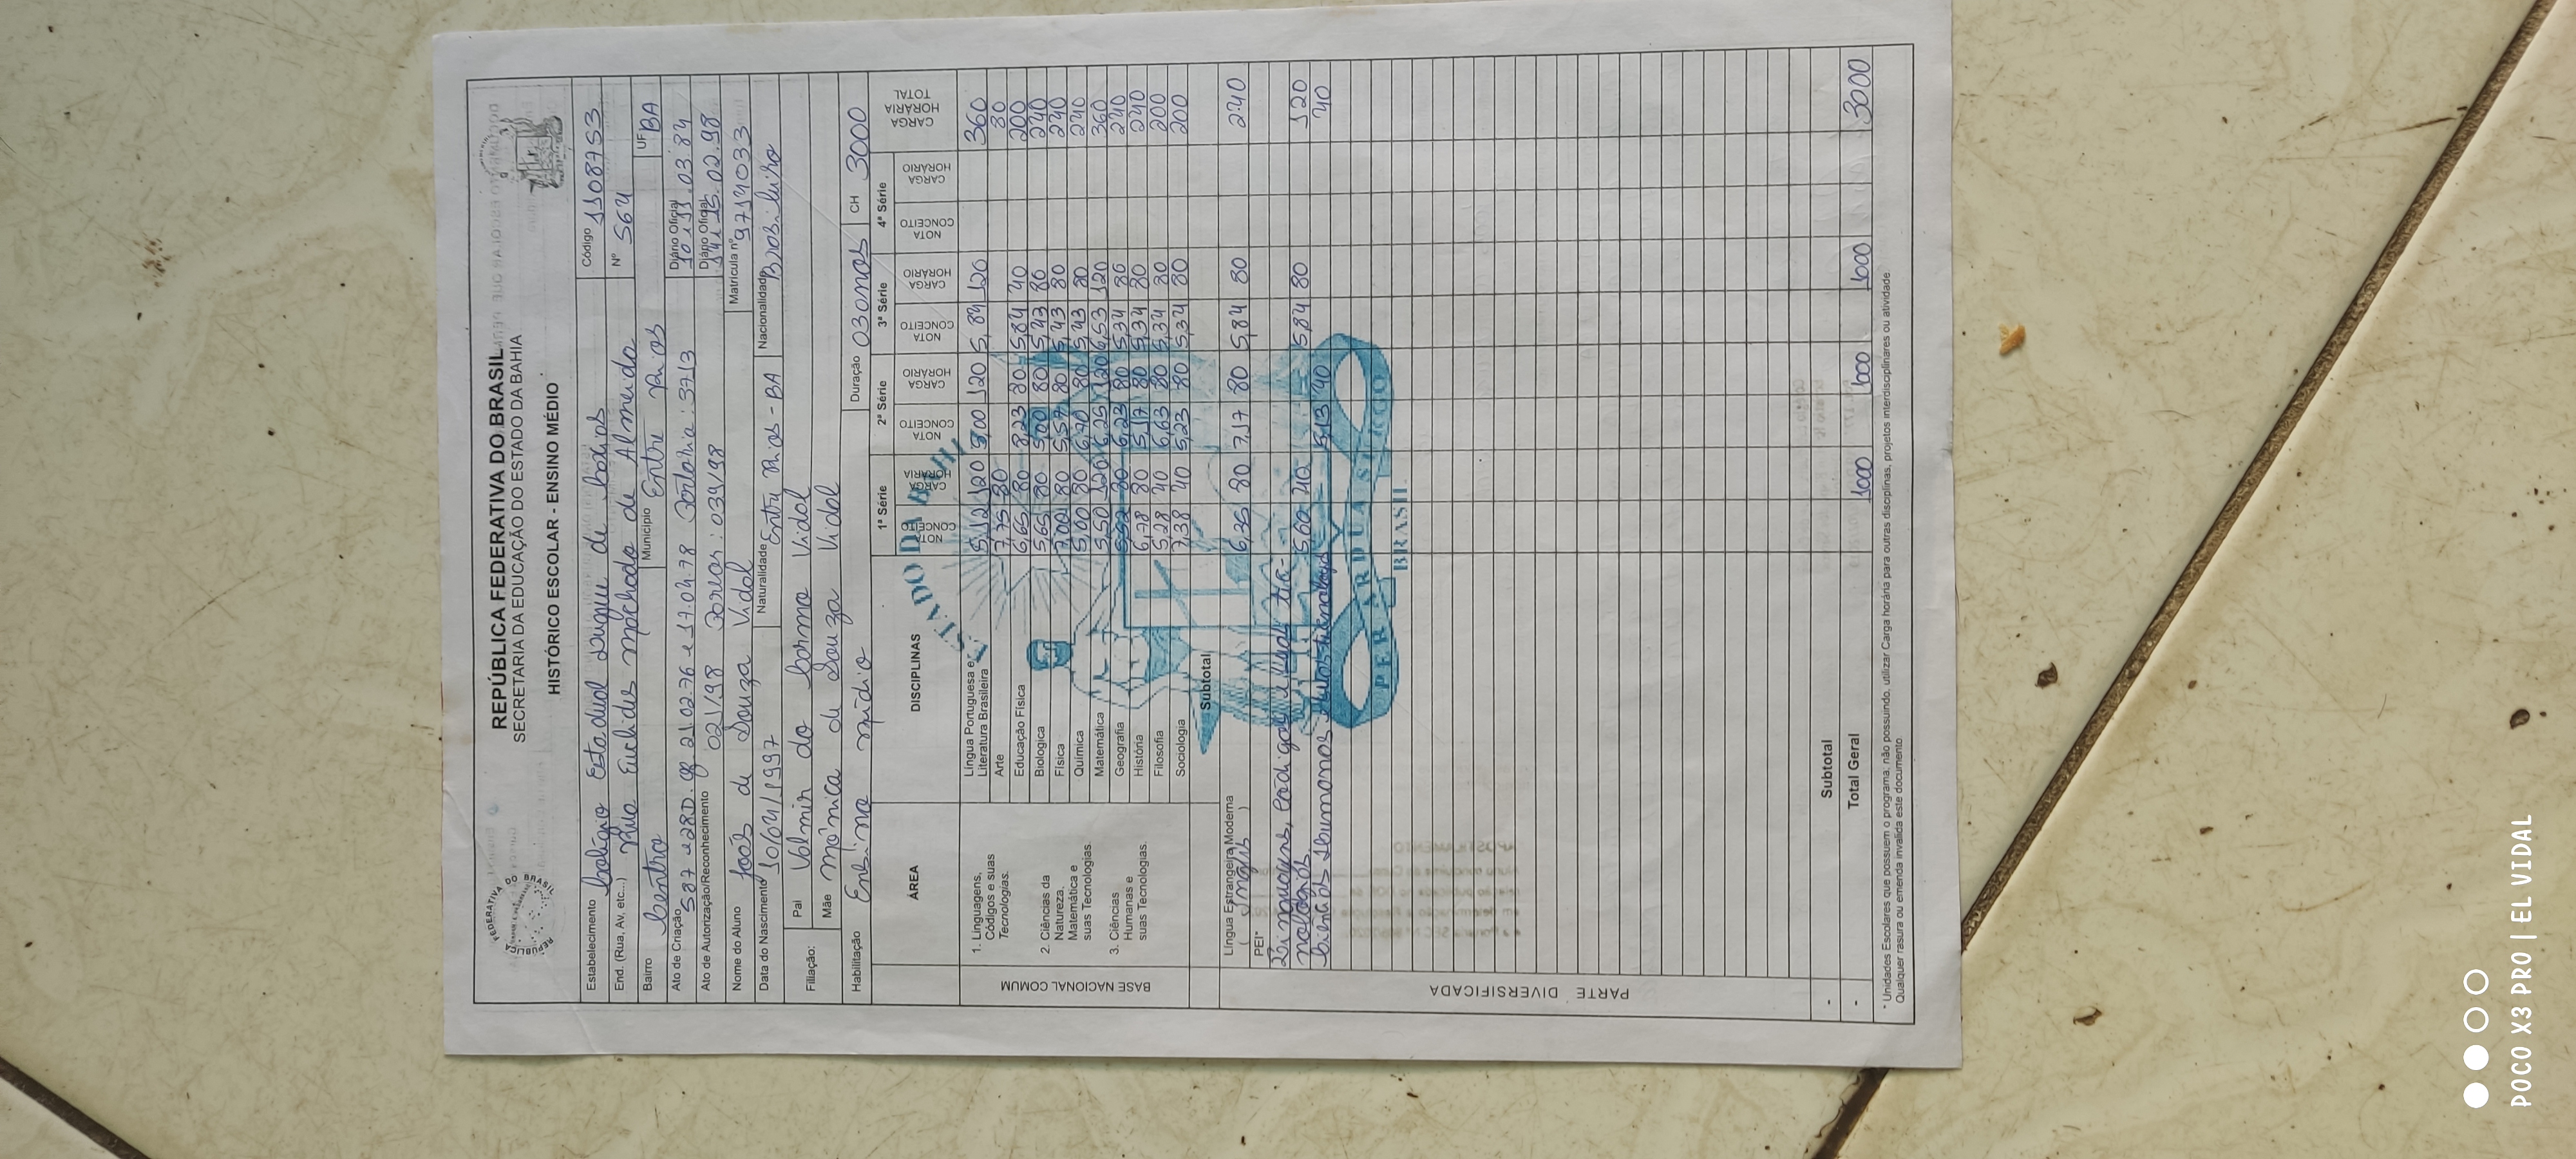 REPÚBLICA FEDERATIVA DO BRASIL
SECRETARIA DA EDUCAÇÃO DO ESTADO DA BAHIA
HISTÓRICO ESCOLAR - ENSINO MÉDIO
Estabelecimento Colégio Estadual Duque de Caxias Código 1108753
End. (Rua, Av, etc...) Rua Euclides Machado de Almeida Nº 564
Bairro Centro Município Entre Rios UF BA
Ato de Criação 587 e 28 D. 21.02.76 e 17.04.78 Portaria: 3713 Diário Oficial 10 e 11.03.84
Ato de Autorização/Reconhecimento 021/98 039/98 Diário Oficial 14 e 15.02.98
Nome do Aluno João de Souza Vidal Matrícula nº 97140033
Data do Nascimento 10/04/1997 Naturalidade Entre Rios - BA Nacionalidade Brasileiro
Filiação: Pai Valmir do Carmo Vidal
Mãe Mônica de Souza Vidal
Habilitação Ensino Médio Duração 03 anos CH 3000
ÁREA DISCIPLINAS 1ª Série 2ª Série 3ª Série 4ª Série CARGA HORÁRIA TOTAL
NOTA CONCEITO CARGA HORÁRIA NOTA CONCEITO CARGA HORÁRIO NOTA CONCEITO CARGA HORÁRIO NOTA CONCEITO CARGA HORÁRIO
BASE NACIONAL COMUM
1. Linguagens, Códigos e suas Tecnologias.
2. Ciências da Natureza, Matemática e suas Tecnologias.
3. Ciências Humanas e suas Tecnologias.
Língua Portuguesa e Literatura Brasileira 5,12 120 5,00 120 5,84 120 360
Arte 7,75 80 80
Educação Física 6,65 80 8,23 80 5,84 40 200
Biologica 5,65 80 5,00 80 5,43 80 240
Física 7,00 80 5,57 80 5,43 80 240
Química 5,00 80 6,70 80 5,43 80 240
Matemática 5,50 120 6,25 120 6,53 120 360
Geografia 80 6,23 80 5,34 80 240
História 6,78 80 5,17 80 5,34 80 240
Filosofia 5,28 40 6,63 80 5,34 80 200
Sociologia 7,38 40 5,23 80 5,34 80 200
Subtotal
PARTE DIVERSIFICADA
Língua Estrangeira Moderna
( Inglês ) 6,35 80 7,17 80 5,84 80 240
PEI*
Linguagens, Códigos e suas tec-
nologias 5,60 40 5,84 80 120
Ciências Humanas e suas tecnologias 5,13 40 40
Subtotal
Total Geral 1000 1000 1000 3000
* Unidades Escolares que possuem o programa; não possuindo, utilizar Carga horária para outras disciplinas, projetos interdisciplinares ou atividade
Qualquer rasura ou emenda invalida este documento
ESTADO DA BAHIA
PER ARDUA SURGO
BRASIL
FEDERATIVA DO BRASIL
REPÚBLICA
APOSTILAMENTO
POCO X3 PRO | EL VIDAL